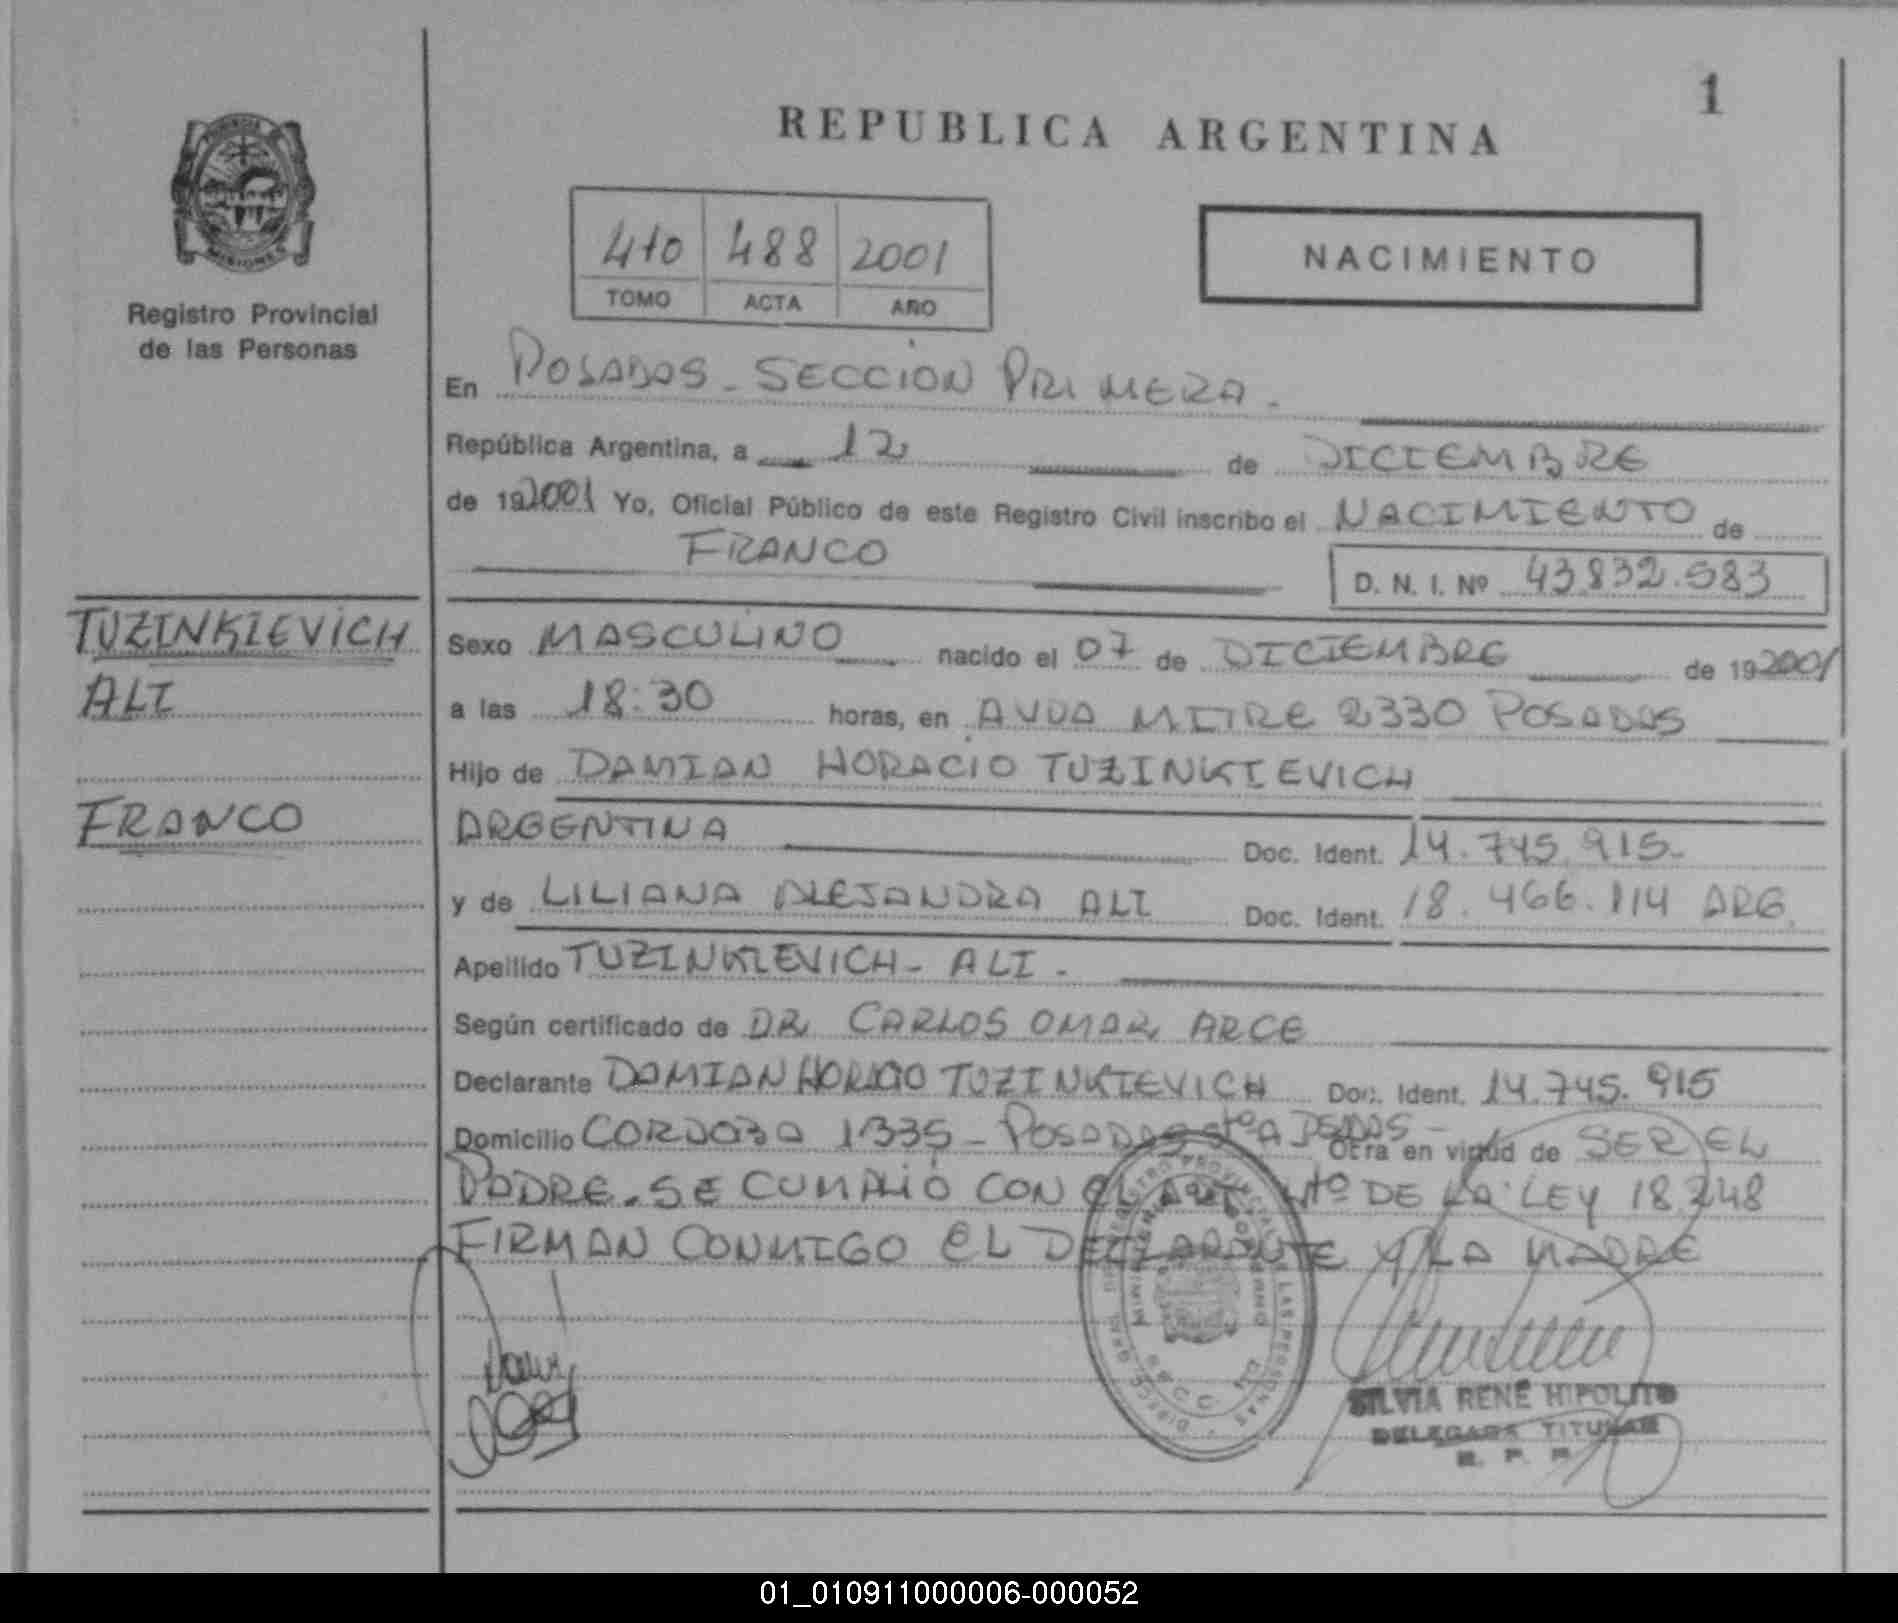 1
REPUBLICA ARGENTINA
MISIONES
Registro Provincial
de las Personas
410 488 2001
TOMO ACTA AÑO
NACIMIENTO
En POSADAS - SECCION PRIMERA -
República Argentina, a 12 de DICIEMBRE
de 192001 Yo, Oficial Público de este Registro Civil inscribo el NACIMIENTO de
FRANCO
D. N. I. Nº 43.832.583
TUZINKIEVICH
ALI
FRANCO
Sexo MASCULINO nacido el 07 de DICIEMBRE de 192001
a las 18:30 horas, en AVDA MITRE 2330 POSADAS
Hijo de DAMIAN HORACIO TUZINKIEVICH
ARGENTINA Doc. Ident. 14.745.915-
y de LILIANA ALEJANDRA ALI Doc. Ident. 18.466.114 ARG.
Apellido TUZINKIEVICH - ALI -
Según certificado de DR. CARLOS OMAR ARCE
Declarante DAMIAN HORACIO TUZINKIEVICH Doc. Ident. 14.745.915
Domicilio CORDOBA 1335 - POSADAS Otra en virtud de SER EL
PADRE. SE CUMPLIÓ CON EL ART DE LA LEY 18.248
FIRMAN CONMIGO EL DECLARANTE Y LA MADRE
SILVIA RENÉ HIPOLITO
DELEGADA TITULAR
R. P. P.
01_010911000006-000052